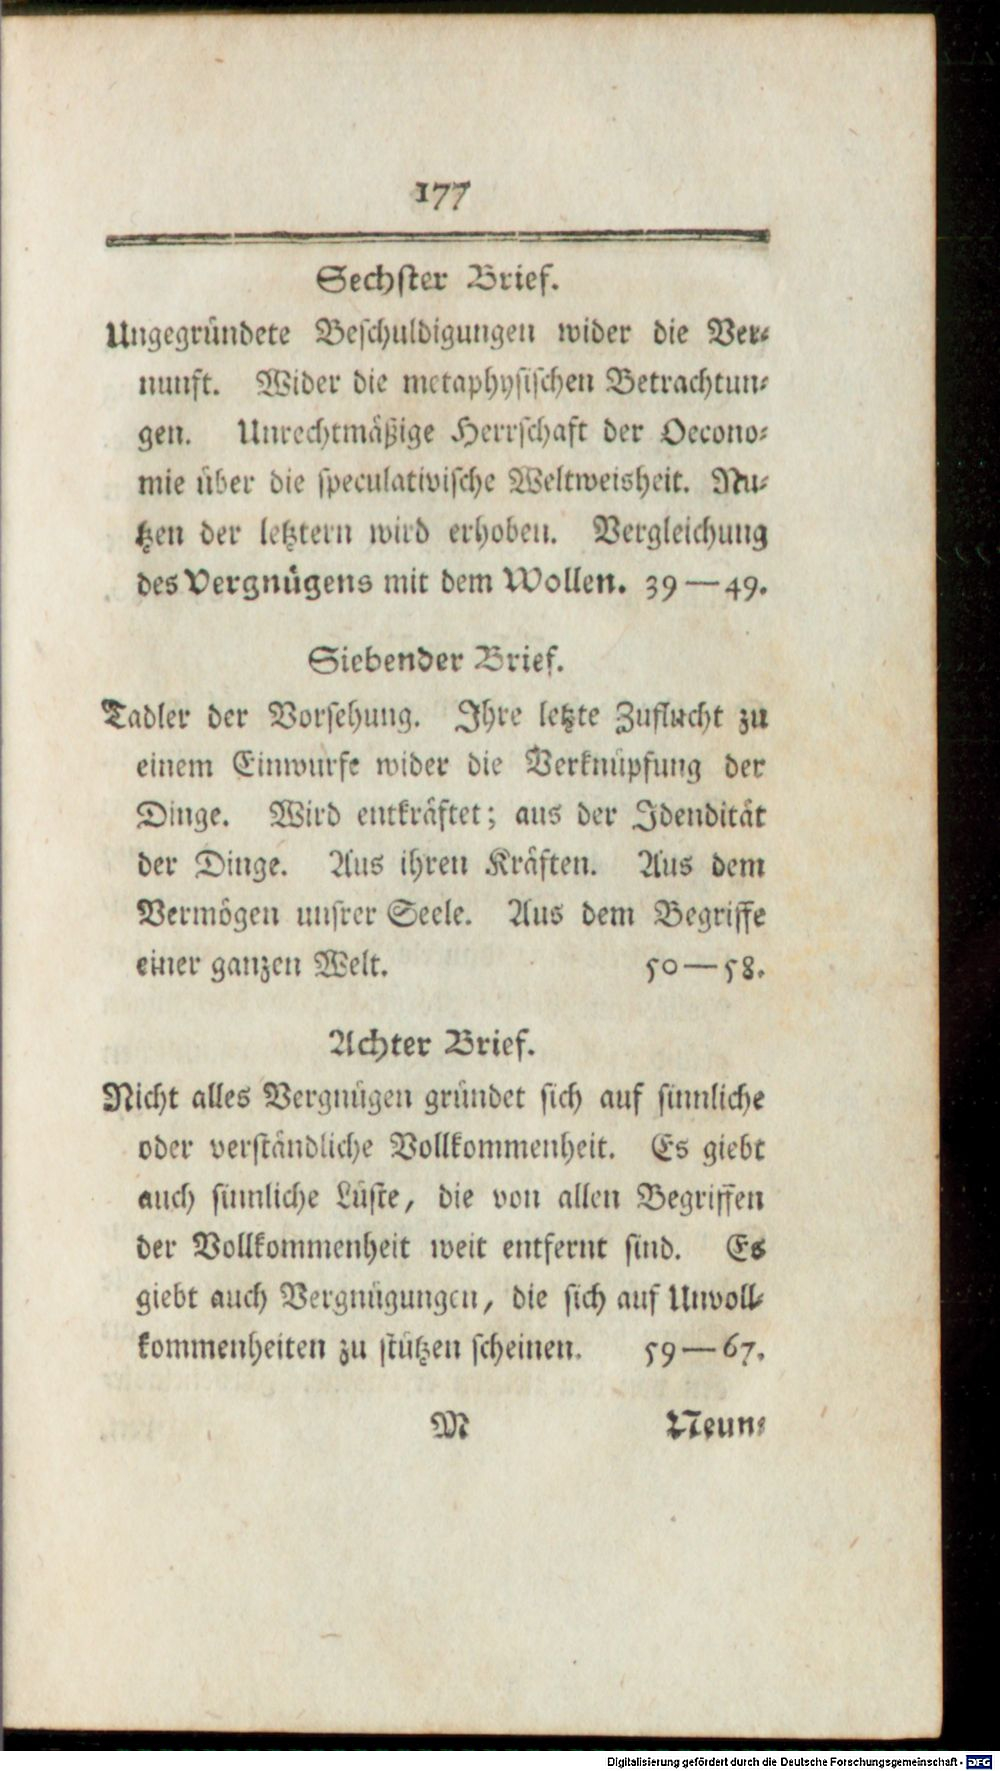 177
Sechster Brief.
Ungegründete Beschuldigungen wider die Ver-
nunft. Wider die metaphysischen Betrachtun-
gen. Unrechtmäßige Herrschaft der Oecono-
mie über die speculativische Weltweisheit. Nu-
tzen der letztern wird erhoben. Vergleichung
des Vergnügens mit dem Wollen. 39—49.
Siebender Brief.
Tadler der Vorsehung. Ihre letzte Zuflucht zu
einem Einwurfe wider die Verknüpfung der
Dinge. Wird entkräftet; aus der Idendität
der Dinge. Aus ihren Kräften. Aus dem
Vermögen unsrer Seele. Aus dem Begriffe
einer ganzen Welt. 50—58.
Achter Brief.
Nicht alles Vergnügen gründet sich auf sinnliche
oder verständliche Vollkommenheit. Es giebt
auch sinnliche Lüste, die von allen Begriffen
der Vollkommenheit weit entfernt sind. Es
giebt auch Vergnügungen, die sich auf Unvoll-
kommenheiten zu stützen scheinen. 59—67.
M Neun-
Digitalisierung gefördert durch die Deutsche Forschungsgemeinschaft - DFG